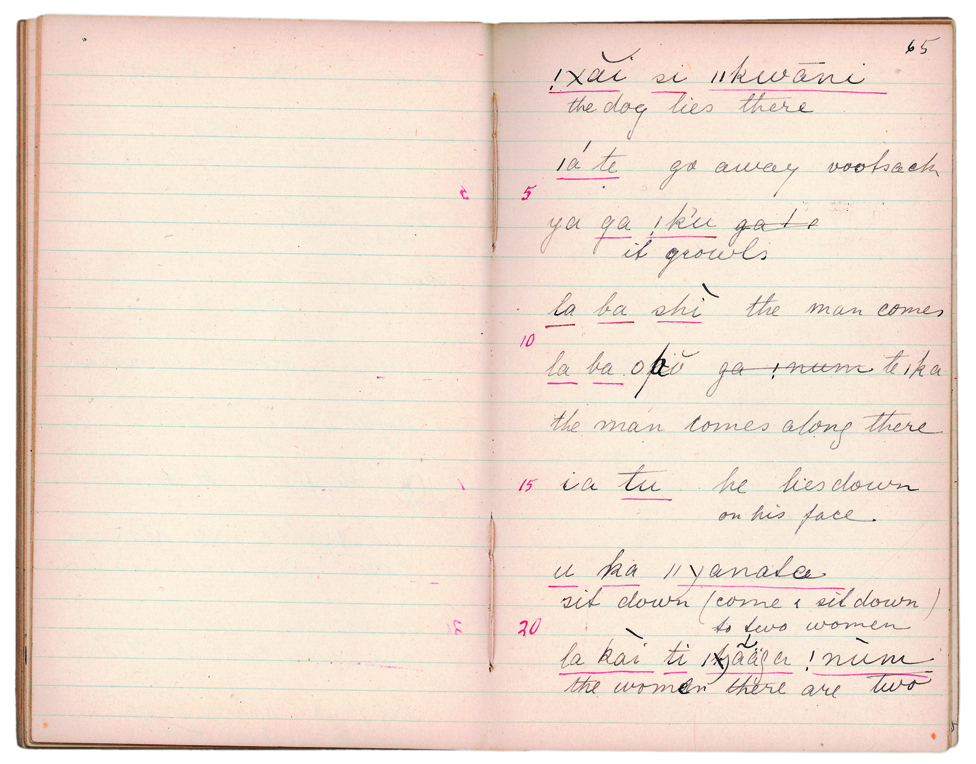 65
!χăi si ǁkwāni
the dog lies there
ǀá te go away vootsack
5
ya ga ǀk'u ga ! e
it growls
la ba shì the man comes
10
la ba ga !num te ǀka
the man comes along there
15 ia tu he lies down
on his face.
u ka ǁyanate
sit down (come & sit down)
20 to two women
la kài ti !nùm
the women there are two